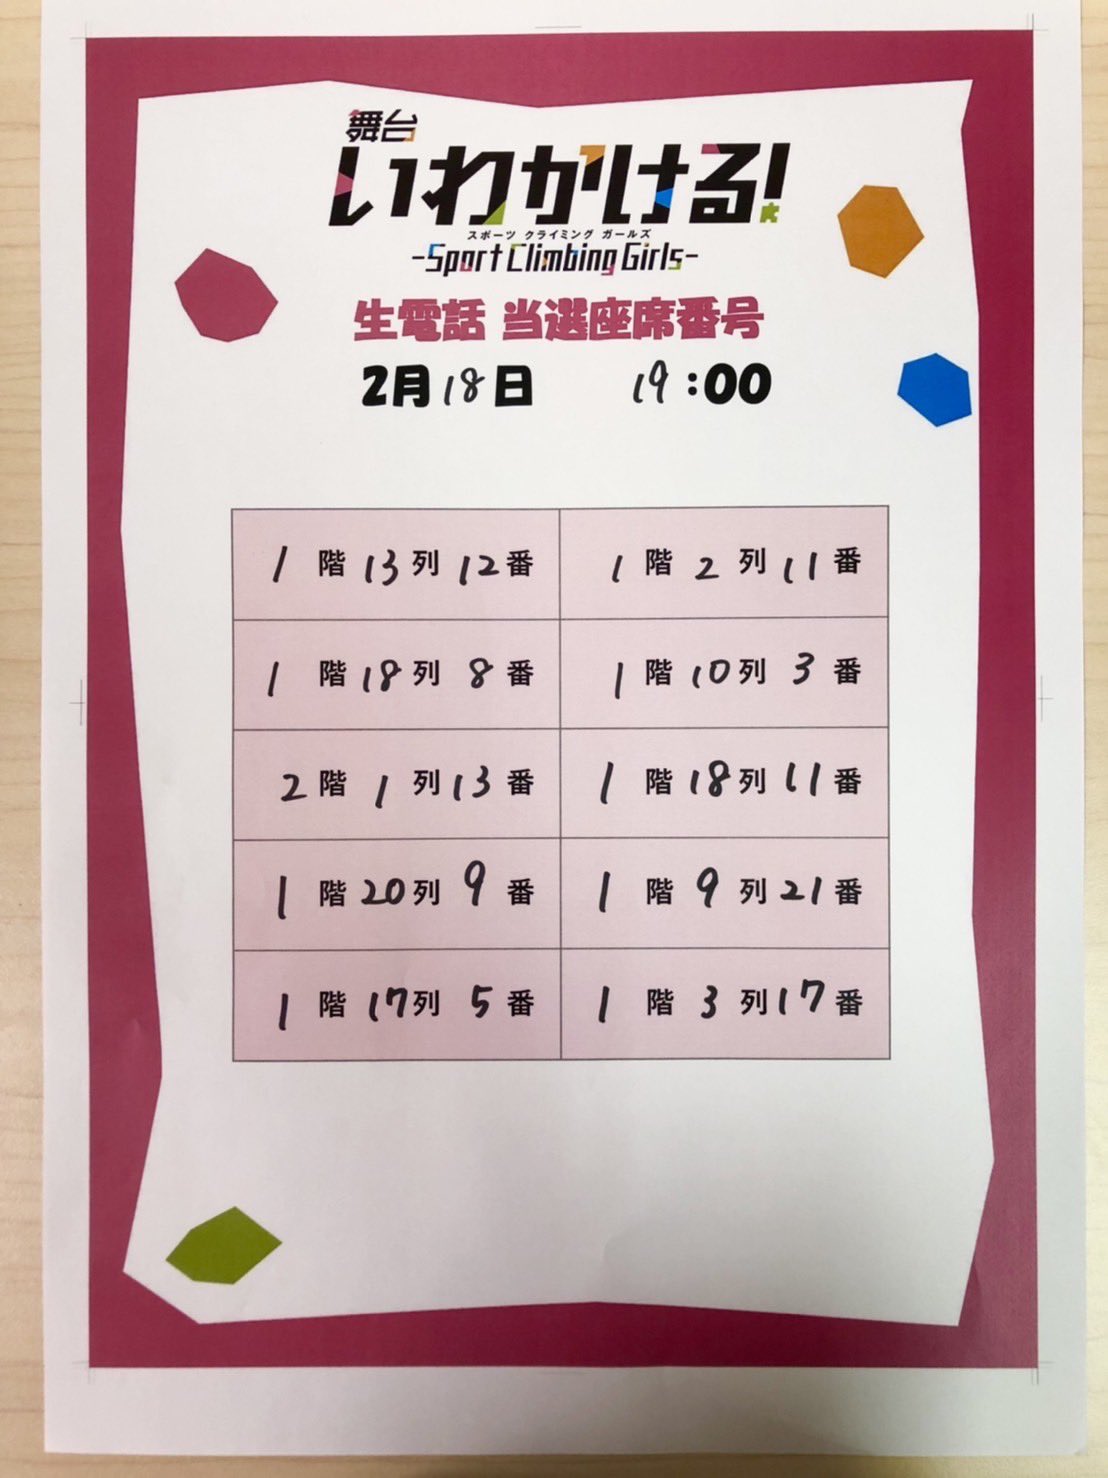 舞台
いわかける!
スポーツ クライミング ガールズ
-Sport Climbing Girls-
生電話 当選座席番号
2月18日 19:00
1階13列12番 1階2列11番
1階18列8番 1階10列3番
2階1列13番 1階18列11番
1階20列9番 1階9列21番
1階17列5番 1階3列17番